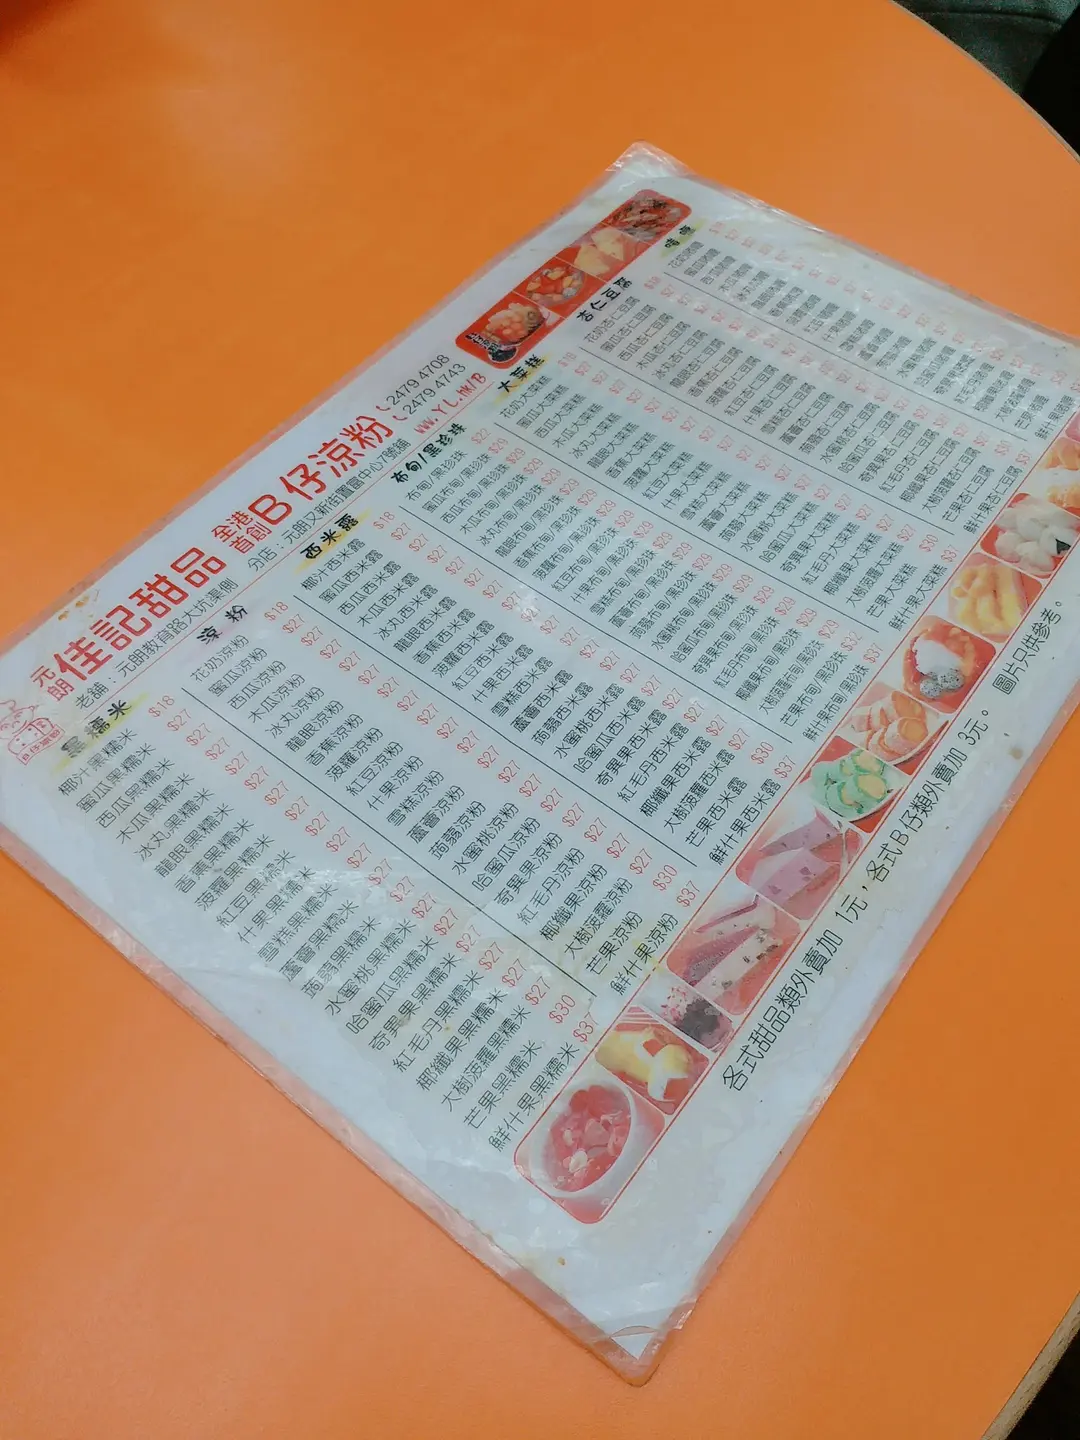 元朗
佳記甜品
全港首創
B仔涼粉
2479 4708
2479 4743
老鋪：元朗教育路大坑渠側
分店：元朗又新街置富中心7號舖
WWW.YL.hk/B
黑糯米
椰汁黑糯米 $18
蜜瓜黑糯米 $27
西瓜黑糯米 $27
木瓜黑糯米 $27
冰丸黑糯米 $27
龍眼黑糯米 $27
香蕉黑糯米 $27
菠蘿黑糯米 $27
紅豆黑糯米 $27
什果黑糯米 $27
雪糕黑糯米 $27
蘆薈黑糯米 $27
蒟蒻黑糯米 $27
水蜜桃黑糯米 $27
哈蜜瓜黑糯米 $27
奇異果黑糯米 $27
紅毛丹黑糯米 $27
椰纖果黑糯米 $27
大樹菠蘿黑糯米 $27
芒果黑糯米 $30
鮮什果黑糯米 $37
涼粉
花奶涼粉 $18
蜜瓜涼粉 $27
西瓜涼粉 $27
木瓜涼粉 $27
冰丸涼粉 $27
龍眼涼粉 $27
香蕉涼粉 $27
菠蘿涼粉 $27
紅豆涼粉 $27
什果涼粉 $27
雪糕涼粉 $27
蘆薈涼粉 $27
蒟蒻涼粉 $27
水蜜桃涼粉 $27
哈蜜瓜涼粉 $27
奇異果涼粉 $27
紅毛丹涼粉 $27
椰纖果涼粉 $27
大樹菠蘿涼粉 $27
芒果涼粉 $30
鮮什果涼粉 $37
西米露
椰汁西米露 $18
蜜瓜西米露 $27
西瓜西米露 $27
木瓜西米露 $27
冰丸西米露 $27
龍眼西米露 $27
香蕉西米露 $27
菠蘿西米露 $27
紅豆西米露 $27
什果西米露 $27
雪糕西米露 $27
蘆薈西米露 $27
蒟蒻西米露 $27
水蜜桃西米露 $27
哈蜜瓜西米露 $27
奇異果西米露 $27
紅毛丹西米露 $27
椰纖果西米露 $27
大樹菠蘿西米露 $27
芒果西米露 $30
鮮什果西米露 $37
布甸/黑珍珠
布甸/黑珍珠 $22
蜜瓜布甸/黑珍珠 $29
西瓜布甸/黑珍珠 $29
木瓜布甸/黑珍珠 $29
冰丸布甸/黑珍珠 $29
龍眼布甸/黑珍珠 $29
香蕉布甸/黑珍珠 $29
菠蘿布甸/黑珍珠 $29
紅豆布甸/黑珍珠 $29
什果布甸/黑珍珠 $29
雪糕布甸/黑珍珠 $29
蘆薈布甸/黑珍珠 $29
蒟蒻布甸/黑珍珠 $29
水蜜桃布甸/黑珍珠 $29
哈蜜瓜布甸/黑珍珠 $29
奇異果布甸/黑珍珠 $29
紅毛丹布甸/黑珍珠 $29
椰纖果布甸/黑珍珠 $29
大樹菠蘿布甸/黑珍珠 $29
芒果布甸/黑珍珠 $32
鮮什果布甸/黑珍珠 $37
大菜糕
花奶大菜糕 $18
蜜瓜大菜糕 $27
西瓜大菜糕 $27
木瓜大菜糕 $27
冰丸大菜糕 $27
龍眼大菜糕 $27
香蕉大菜糕 $27
菠蘿大菜糕 $27
紅豆大菜糕 $27
什果大菜糕 $27
雪糕大菜糕 $27
蘆薈大菜糕 $27
蒟蒻大菜糕 $27
水蜜桃大菜糕 $27
哈蜜瓜大菜糕 $27
奇異果大菜糕 $27
紅毛丹大菜糕 $27
椰纖果大菜糕 $27
大樹菠蘿大菜糕 $27
芒果大菜糕 $30
鮮什果大菜糕 $37
杏仁豆腐
花奶杏仁豆腐
蜜瓜杏仁豆腐
西瓜杏仁豆腐
木瓜杏仁豆腐
冰丸杏仁豆腐
龍眼杏仁豆腐
香蕉杏仁豆腐
菠蘿杏仁豆腐
紅豆杏仁豆腐
什果杏仁豆腐
雪糕杏仁豆腐
蘆薈杏仁豆腐
蒟蒻杏仁豆腐
水蜜桃杏仁豆腐
哈蜜瓜杏仁豆腐
奇異果杏仁豆腐
紅毛丹杏仁豆腐
椰纖果杏仁豆腐
大樹菠蘿杏仁豆腐
芒果杏仁豆腐
鮮什果杏仁豆腐
各式甜品類外賣加 1元，各式B仔類外賣加 3元。 圖片只供參考。